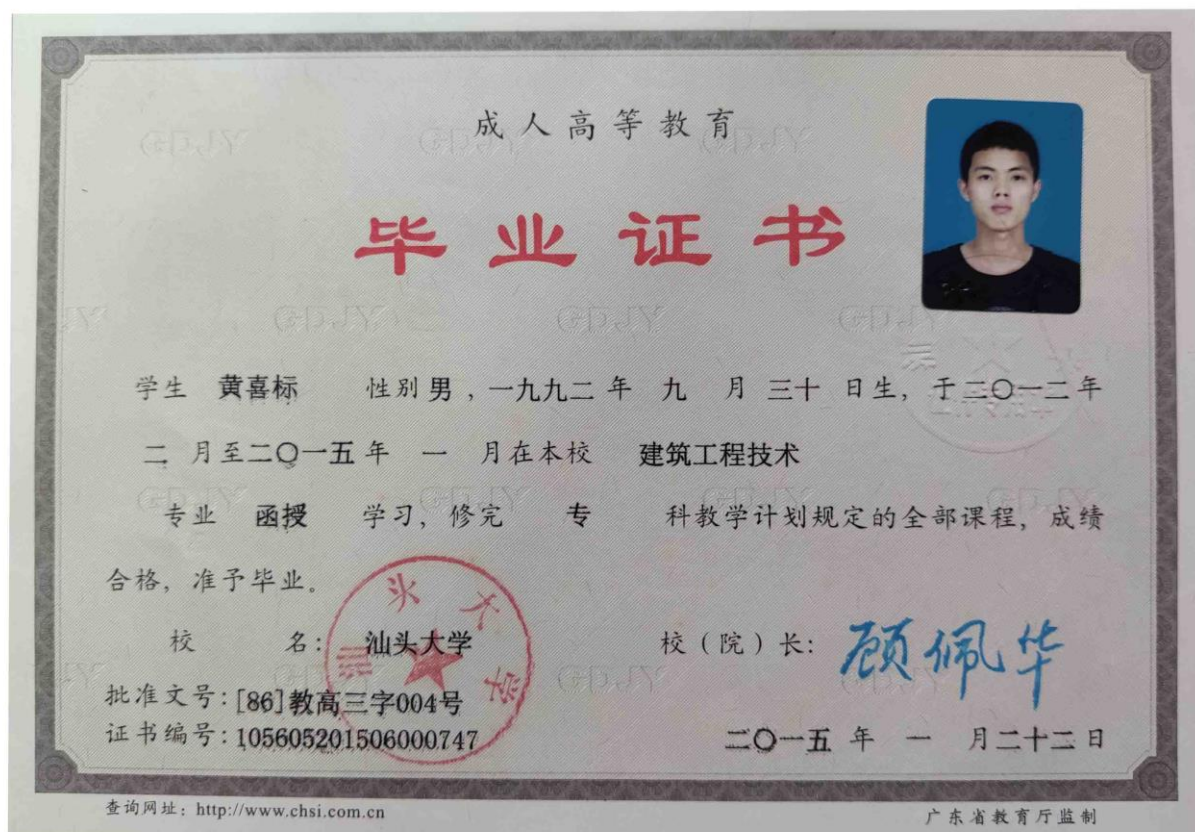 成人高等教育
毕业证书
学生 黄喜标 性别 男,一九九二 年 九 月 三十 日生,于二〇一二年
二 月至二〇一五年 一 月在本校 建筑工程技术
专业 函授 学习,修完 专 科教学计划规定的全部课程,成绩
合格,准予毕业。
校 名: 汕头大学 校(院)长: 顾佩华
批准文号:[86]教高三字004号
证书编号:105605201506000747 二〇一五 年 一 月二十二日
查询网址:http://www.chsi.com.cn 广东省教育厅监制
汕头大学
GDJY